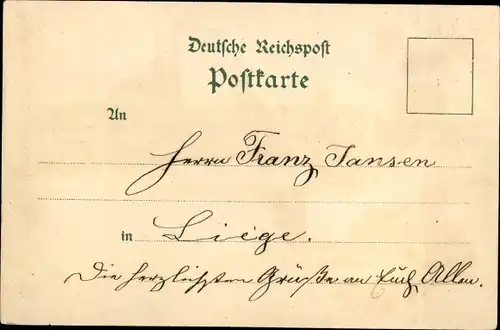 Deutsche Reichspost
Postkarte
An
Herrn Franz Jansen
in Liége.
Die herzlichsten Grüße an Euch Allen.